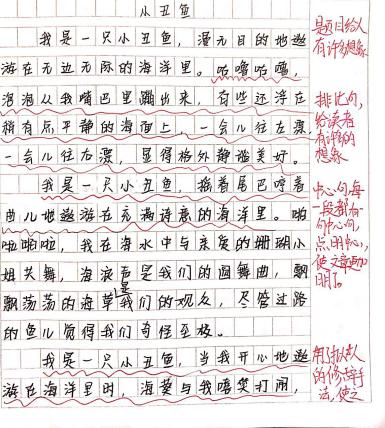 小丑鱼
我是一只小丑鱼，漫无目的地遨
游在无边无际的海洋里。咕噜咕噜，
泡泡从我嘴巴里蹦出来，有些还浮在
稍有点平静的海面上，一会儿往左漂
一会儿往右漂，显得格外静谧美好。
我是一只小丑鱼，摇着尾巴哼着
曲儿地遨游在充满诗意的海洋里。啪
啦啪啦，我在海水中与亲爱的珊瑚小
姐共舞，海浪声是我们的圆舞曲，飘
飘荡荡的海草是我们的观众，尽管过路
的鱼儿觉得我们奇怪至极。
我是一只小丑鱼，当我开心地遨
游在海洋里时，海葵与我嘻笑打闹，
题目给人
有许多想象
排比句，
给读者
有许多的
想象
中心句，每
一段都有
句中心句，
点明中心，
使文章更加
明了。
用了拟人
的修辞手
法，使文